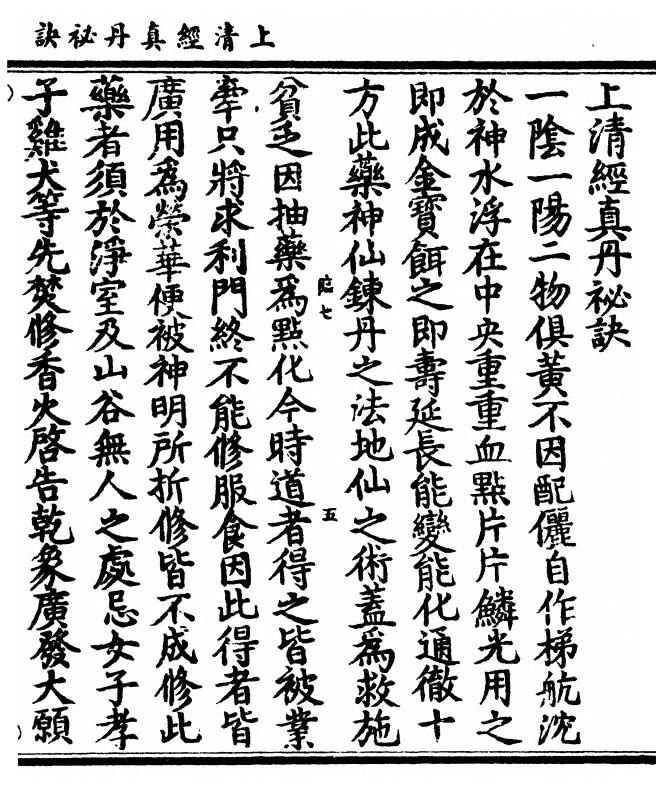 上清經真丹祕訣
上清經真丹祕訣
一陰一陽二物俱黃不因配儷自作梯航沈
於神水浮在中央重重血點片片鱗光用之
即成金寶餌之即壽延長能變能化通徹十
方此藥神仙鍊丹之法地仙之術蓋爲救施
臨七
五
貧乏因抽藥爲點化今時道者得之皆被業
牽只將求利門終不能修服食因此得者皆
廣用爲榮華便被神明所折修皆不成修此
藥者須於淨室及山谷無人之處忌女子孝
子雞犬等先焚修香火啓告乾象廣發大願